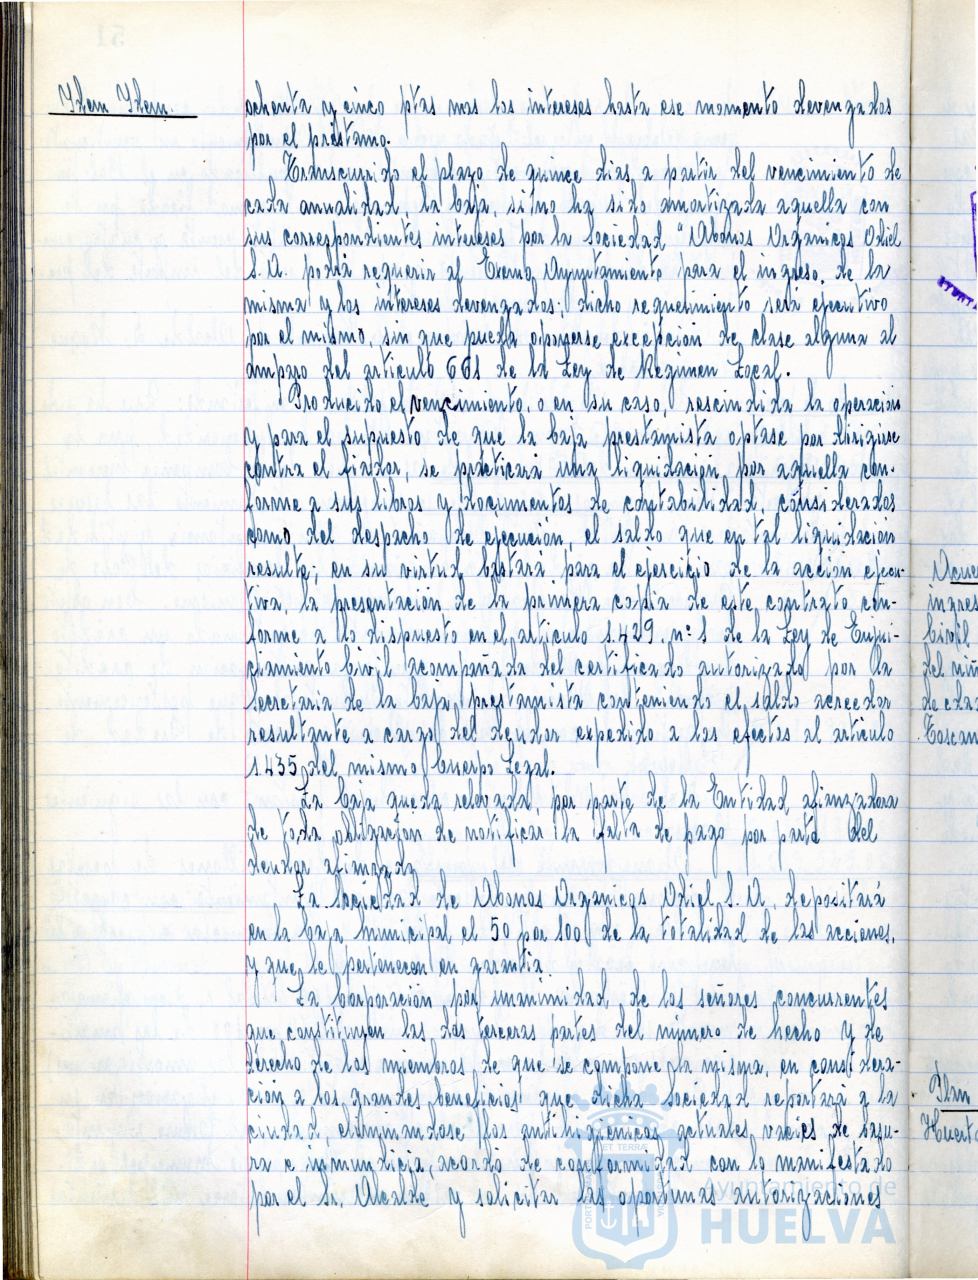 Idem Idem
ochenta y cinco ptas mas los intereses hasta ese momento devengados
por el préstamo.
Transcurrido el plazo de quince dias, a partir del vencimiento de
cada anualidad, la Caja, si no ha sido amortizada aquella con
sus correspondientes intereses por la Sociedad "Abonos Organicos Odiel
S.A. podrá requerir al Excmo. Ayuntamiento para el ingreso, de la
misma y los intereses devengados; dicho requerimiento será ejecutivo
por el mismo, sin que pueda oponerse excepción de clase alguna al
amparo del articulo 661 de la Ley de Regimen Local.
Producido el vencimiento, o en su caso, rescindida la operación
y para el supuesto de que la Caja prestamista optase por dirigirse
contra el fiador, se practicará una liquidación por aquella con-
forme a sus libros y documentos de contabilidad, considerados
como del despacho de ejecución, el saldo que en tal liquidación
resulte; en su virtud, bastará para el ejercicio de la acción ejecu-
tiva la presentación de la primera copia de este contrato con-
forme a lo dispuesto en el articulo 1.429, nº 1 de la Ley de Enjui-
ciamiento Civil, acompañada del certificado autorizado por la
Secretaria de la Caja prestamista conteniendo el saldo acreedor
resultante a cargo del deudor expedido a los efectos al articulo
1.435 del mismo Cuerpo Legal.
La Caja queda relevada, por parte de la Entidad afianzadora
de toda obligación de notificar la falta de pago por parte del
deudor afianzado
La Sociedad de Abonos Organicos Odiel, S.A, depositará
en la Caja Municipal el 50 por 100 de la totalidad de las acciones,
y que le pertenecen en garantia.
La Corporación por unanimidad de los señores concurrentes
que constituyen las dos terceras partes del número de hecho y de
derecho de los miembros de que se compone la misma, en conside­ra-
ción a los grandes beneficios que dicha sociedad reportará a la
ciudad, eliminandose los antihigienicos actuales vacies de basu-
ra e inmundicia, acordó de conformidad con lo manifestado
por el Sr. Alcalde y solicitar las oportunas autorizaciones
ingres
Civil
del niñ
de edad
Toscan
Idem
Huerta
ET TERRA
Ayuntamiento de
HUELVA